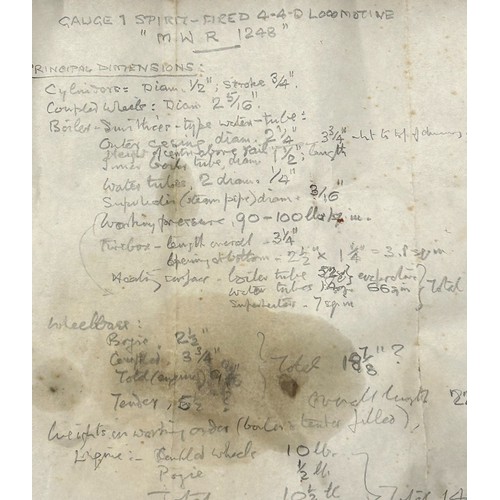 GAUGE 1 SPIRIT-FIRED 4-4-0 LOCOMOTIVE
"M.W.R 1248"
PRINCIPAL DIMENSIONS:
Cylinders: Diam. 1/2"; Stroke 3/4".
Coupled Wheels: Diam 2 5/16".
Boiler - Smithies-type water-tube:
Outer casing diam. 2 1/4"
Height of centre above rail 3 3/4" - ht to top of
Inner boiler tube, diam 1 1/2"; length
Water tubes, 2 diam. 1/4"
Superheater (steam pipe) diam. 3/16"
Working pressure, 90-100 lbs/sq in.
Firebox - length overall - 3 1/4"
Opening at bottom - 2 1/2" x 1 1/4" = 3.8 sq in
Heating surface - boiler tube 52 sq evaporative
Water tubes 66 sq in Total
Superheaters - 7 sq in
Wheelbase:
Bogie, 2 1/2"
Coupled 3 3/4"
Total (engine) Total 18 7/8" ?
Tender, 5 1/2" ?
Overall length 22
Weights in working order (boiler & tender filled),
Engine:- Coupled wheels 10 lb.
Bogie 1/2 lb.
Total 10 1/2 lb
Total 14